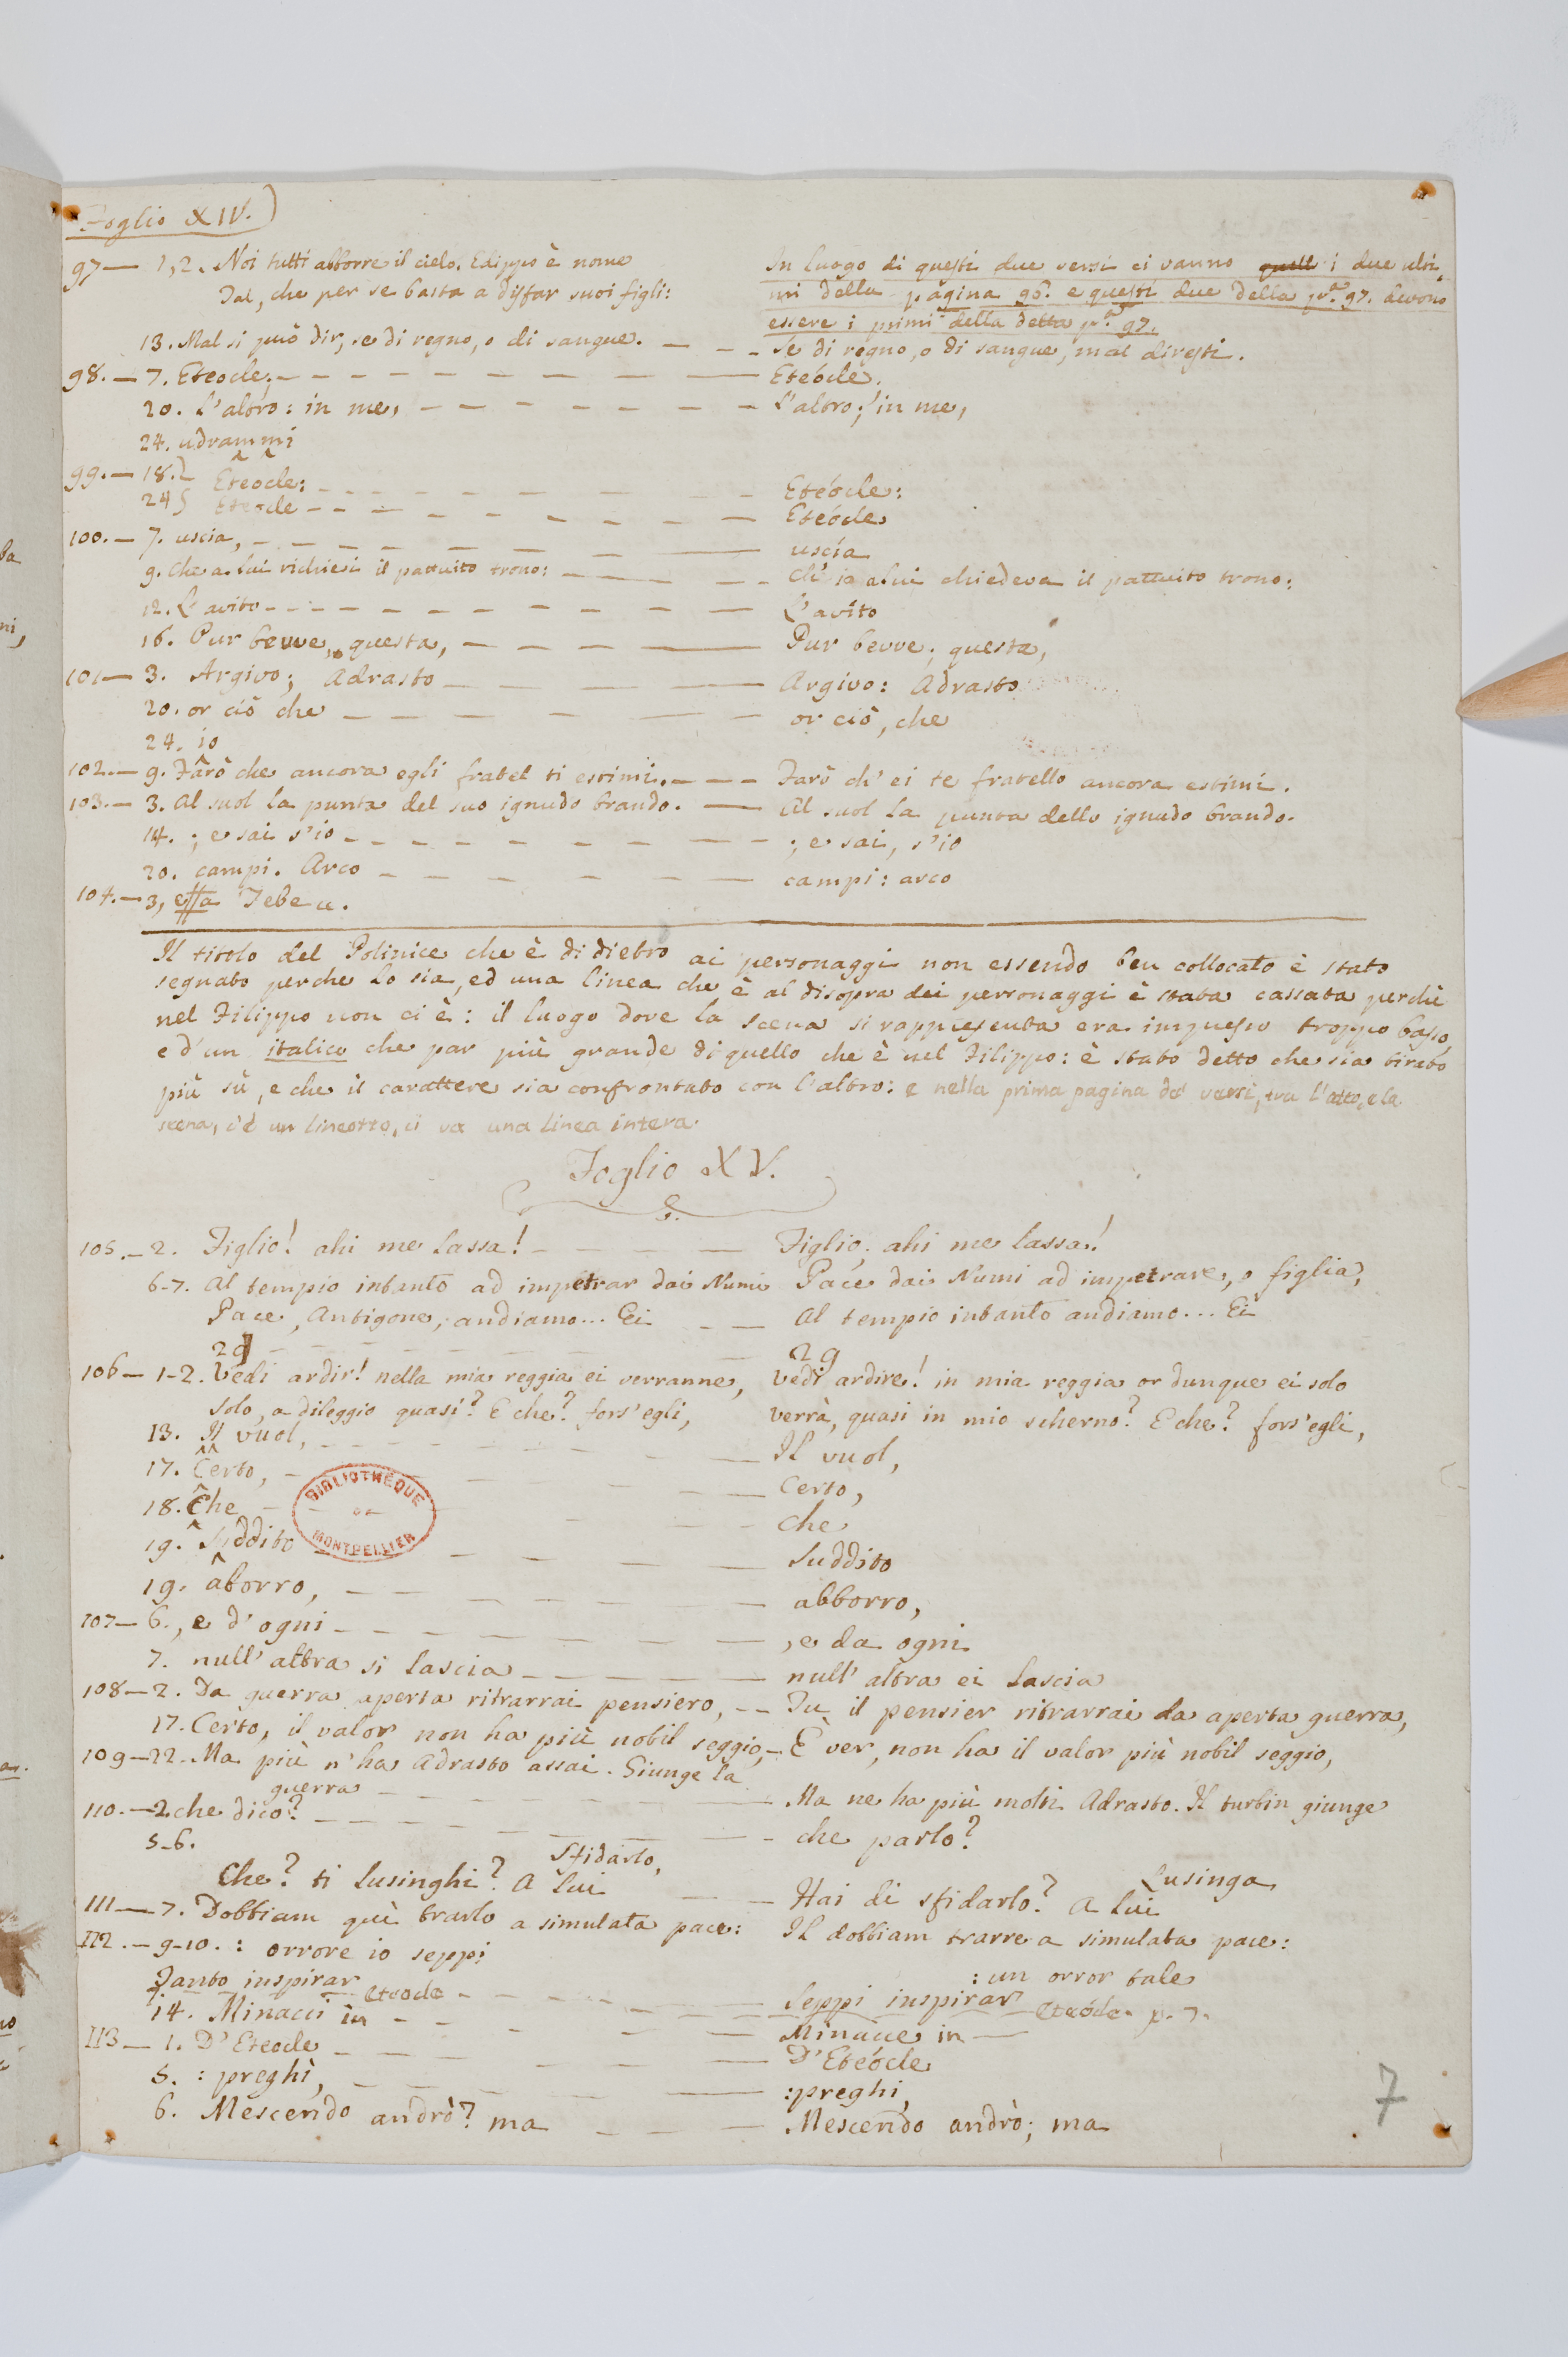 Foglio XIV.
97— 1,2. Noi tutti abborre il cielo. Edippo è nome
Tal, che per se basta a disfar suoi figli:
In luogo di questi due versi ci vanno quell i due ulti-
mi della pagina 96. e questi due della pa. 97. devono
essere i primi della detta pa. 97.
13. Mal si può dir, se di regno, o di sangue. — — — Se di regno, o di sangue, mal diresti.
98.— 7. Eteocle. — — — Etéocle.
20. L'altro: in me, — — — L'altro; in me,
24. udrammi
99.— 18. Eteocle: — — — Etéocle:
24 Eteocle — — — Etéocle
100.— 7. uscia, — — — uscía
9. Che a lui richiesi il pattuito trono: — — — Ch'io a lui chiedeva il pattuito trono:
12. L'avito — — — L'avíto
16. Pur bevve, questa, — — — Pur bevve; questa,
101— 3. Argivo; Adrasto — — — Argivo: Adrasto
20. or ciò che — — — or ciò, che
24. io
102.— 9. Farò che ancora egli fratel ti estimi. — — — Farò ch'ei te fratello ancora estimi.
103.— 3. Al suol la punta del suo ignudo brando. — Al suol la punta dello ignudo brando.
14. ; e sai s'io — — — ; e sai, s'io
20. campi. Arco — — — campi: arco
104.— 3, essa Tebe a.
Il titolo del Polinice che è di dietro ai personaggi non essendo ben collocato è stato
segnato perche lo sia, ed una linea che è al disopra dei personaggi è stata cassata perchè
nel Filippo non ci è: il luogo dove la scena si rappresenta era impresso troppo basso,
e d'un italico che par più grande di quello che è nel Filippo: è stato detto che sia tirato
più sù, e che il carattere sia confrontato con l'altro: e nella prima pagina de' versi, tra l'atto, e la
scena, c'è un lineotto, ci va una linea intera.
Foglio XV.
105.— 2. Figlio! ahi me lassa! — — — Figlio. ahi me lassa!
6-7. Al tempio intanto ad impetrar dai Numi Pace dai Numi ad impetrare, o figlia,
Pace, Antigone, andiamo... Ei — — Al tempio intanto andiamo... Ei
29 — — — 29
106— 1-2. Vedi ardir! nella mia reggia ei verranne, Vedi ardire! in mia reggia or dunque ei solo
Solo, a dileggio quasi? E che? fors'egli, Verrà, quasi in mio scherno? E che? fors'egli,
13. Il vuol, — — — Il vuol,
17. Certo, — — — Certo,
18. Che — — — Che
19. Suddito — — — Suddito
BIBLIOTHEQUE DE MONTPELLIER
19. aborro, — — — abborro,
107— 6. , e d'ogni — — — , e da ogni
7. null'altra si lascia — — — null'altra ei lascia
108— 2. Da guerra aperta ritrarrai pensiero, — — Tu il pensier ritrarrai da aperta guerra,
17. Certo, il valor non ha più nobil seggio, — È ver, non ha il valor più nobil seggio,
109— 22. Ma più n'ha Adrasto assai. Giunge la
guerra — — — Ma ne ha più molti Adrasto. Il turbin giunge
110.— 2. che dico? — — — che parlo?
5-6. Sfidarlo, Lusinga
Che? ti lusinghi? A lui — — Hai di sfidarlo? A lui
111— 7. Dobbiam quì trarlo a simulata pace: Il dobbiam trarre a simulata pace:
112.— 9-10. : orrore io seppi : un orror tale
Tanto inspirar — — — Seppi inspirar
7. Eteocle — — — Etéocle. p. 7.
14. Minacci in — — — Minacce in —
113— 1. D'Eteocle — — — D'Etéocle
5. : preghì, — — — :preghi,
6. Mescendo andrò? ma — — — Mescendo andrò; ma
7